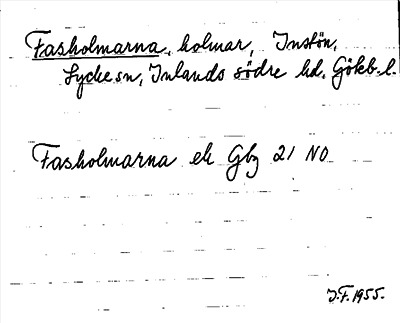 Fasholmarna, holmar, Instön,
Lycke sn, Inlands södre hd. Götkb. l.
Fasholmarna ek Gbg 21 NO
J.F. 1955.